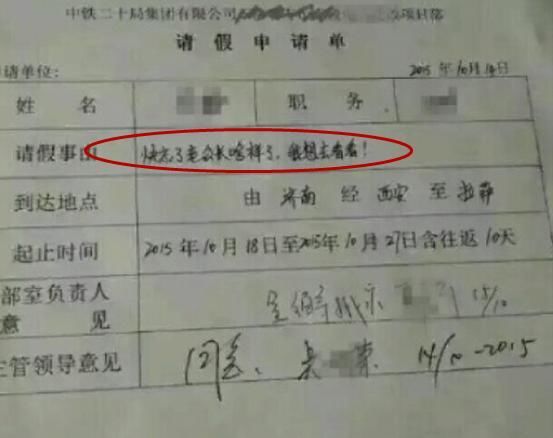 中铁二十局集团有限公司 项目部
请假申请单
申请单位: 2015年10月14日
姓名 职务
请假事由 快忘了老公长啥样了,我想去看看!
到达地点 由 济南 经 西安 至 拉萨
起止时间 2015年10月18日至2015年10月27日含往返10天
部室负责人 15/10
意见
主管领导意见 同意. 14/10-2015